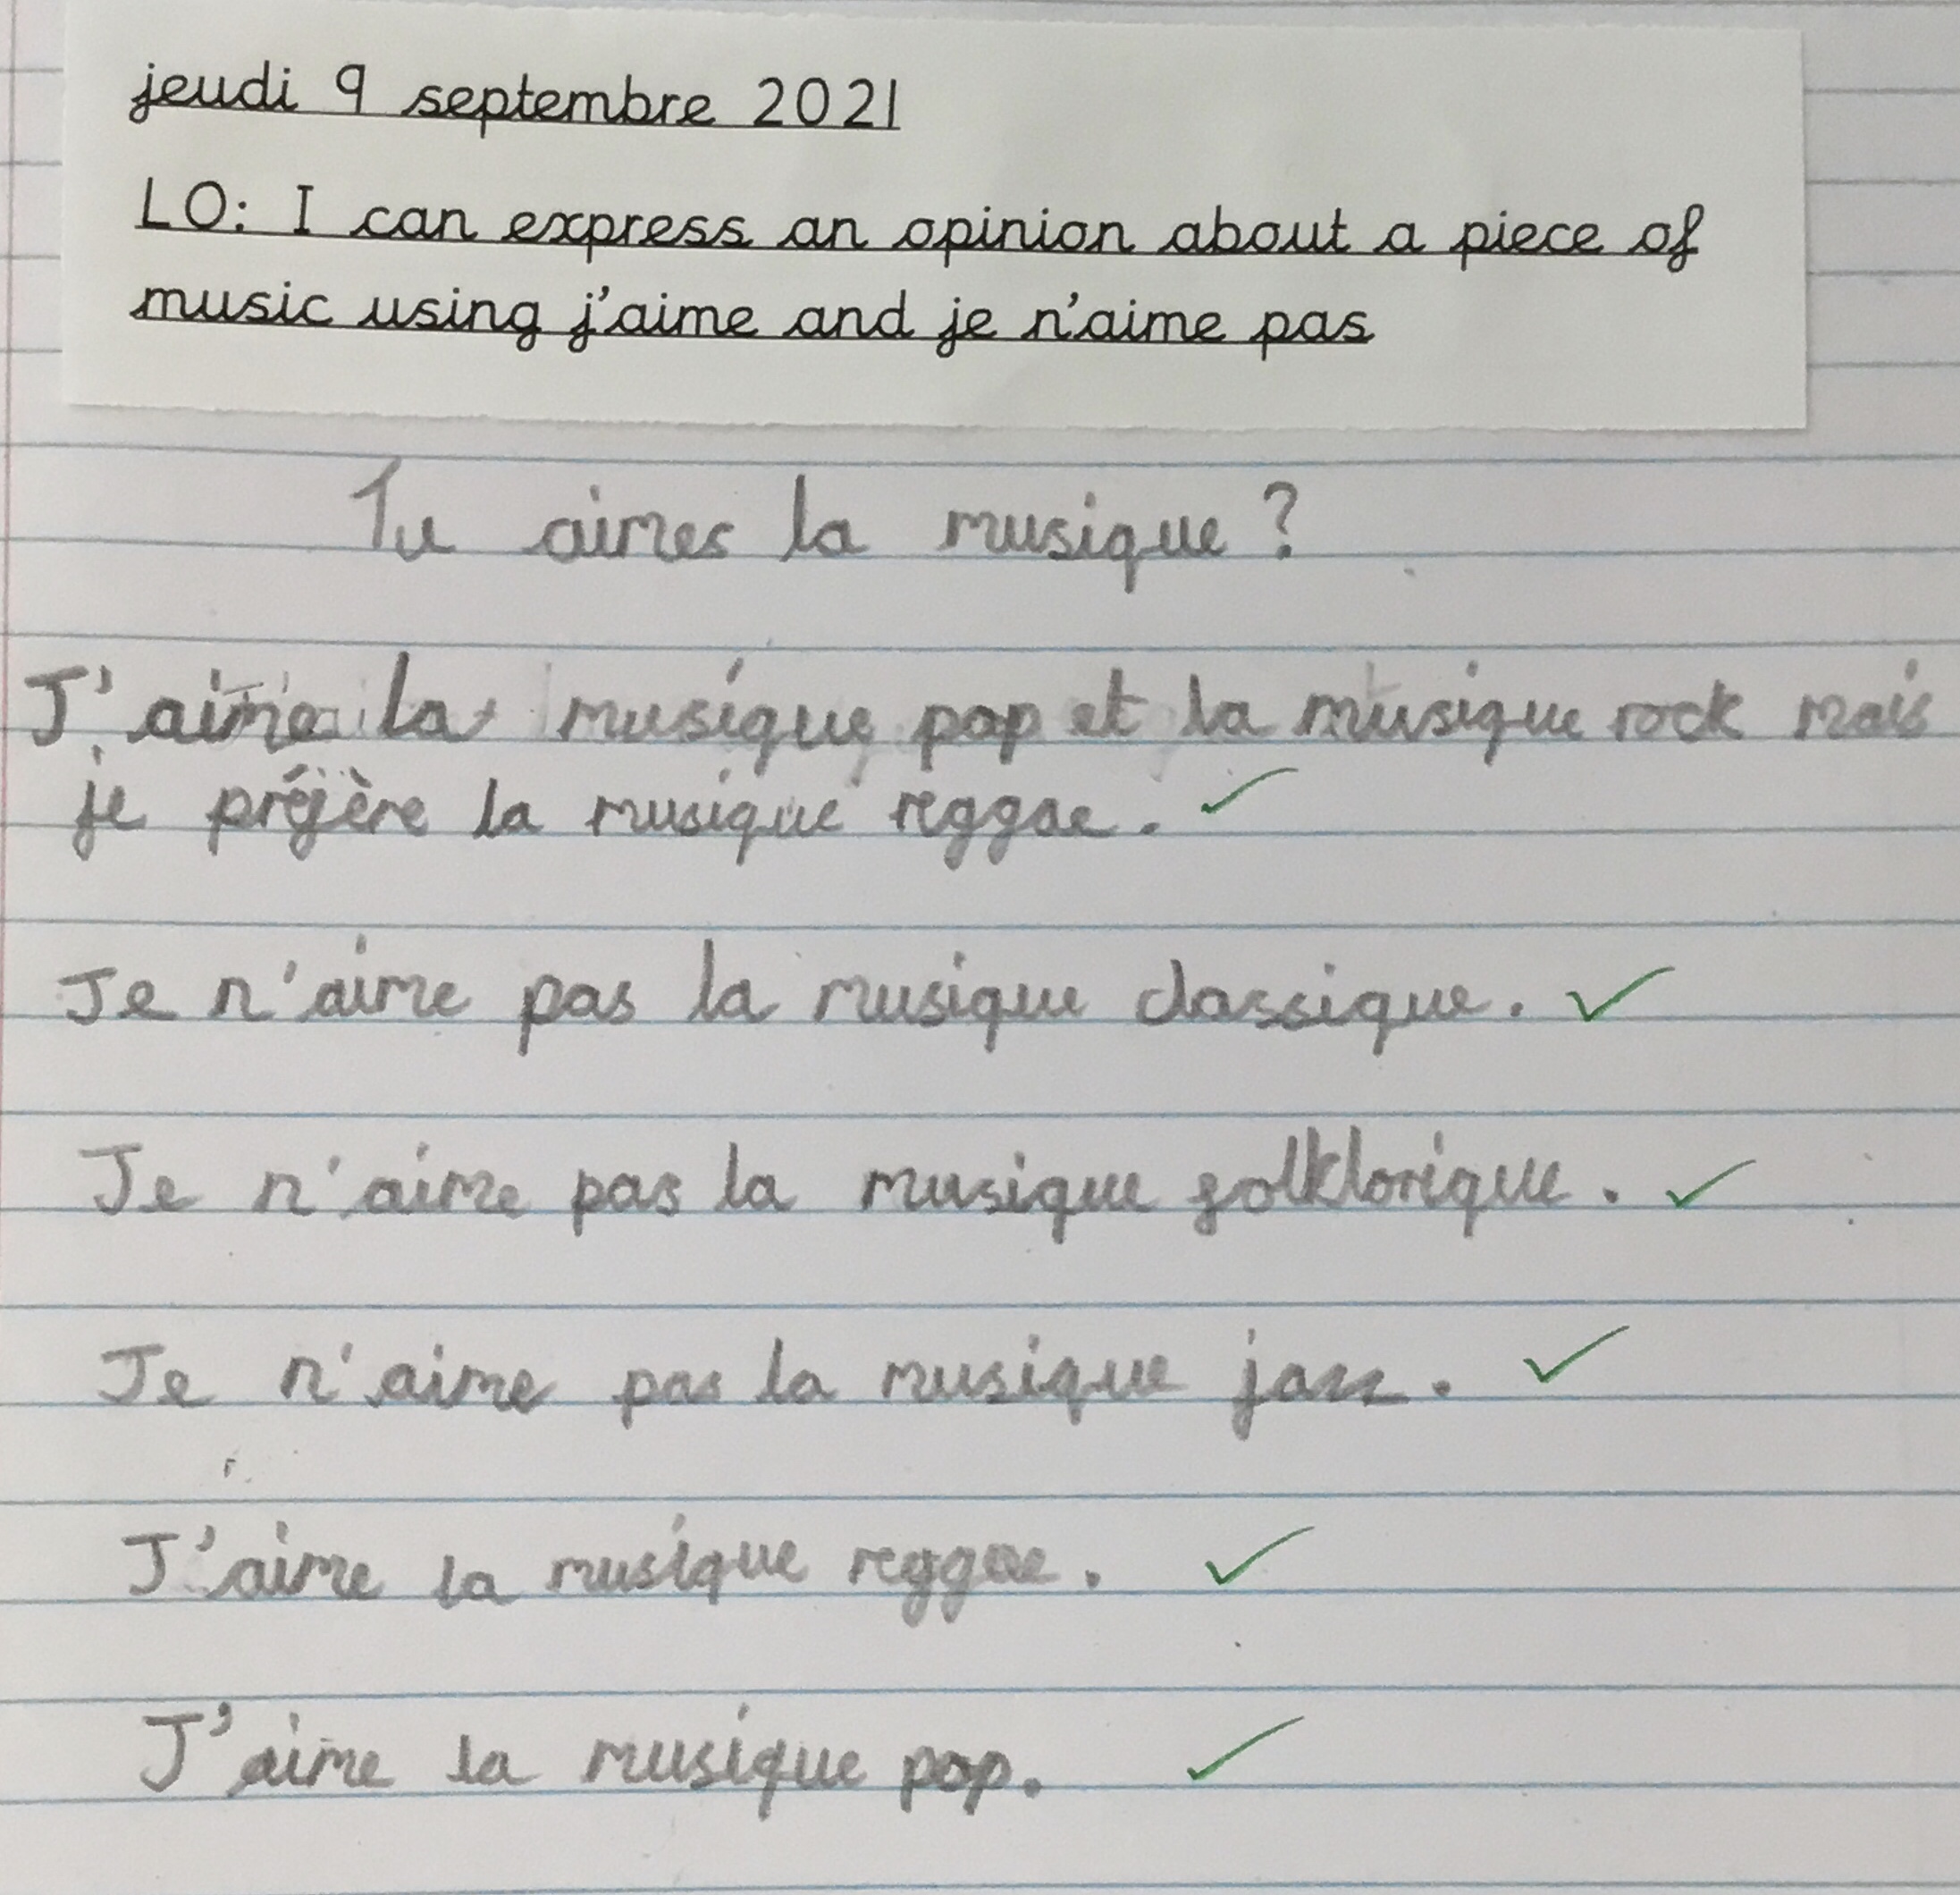 jeudi 9 septembre 2021
LO: I can express an opinion about a piece of
music using j'aime and je n'aime pas
Tu aimes la musique?
J'aime la musique pop et la musique rock mais
je préfère la musique reggae.
Je n'aime pas la musique classique.
Je n'aime pas la musique folklorique.
Je n'aime pas la musique jazz.
J'aime la musique reggae.
J'aime la musique pop.